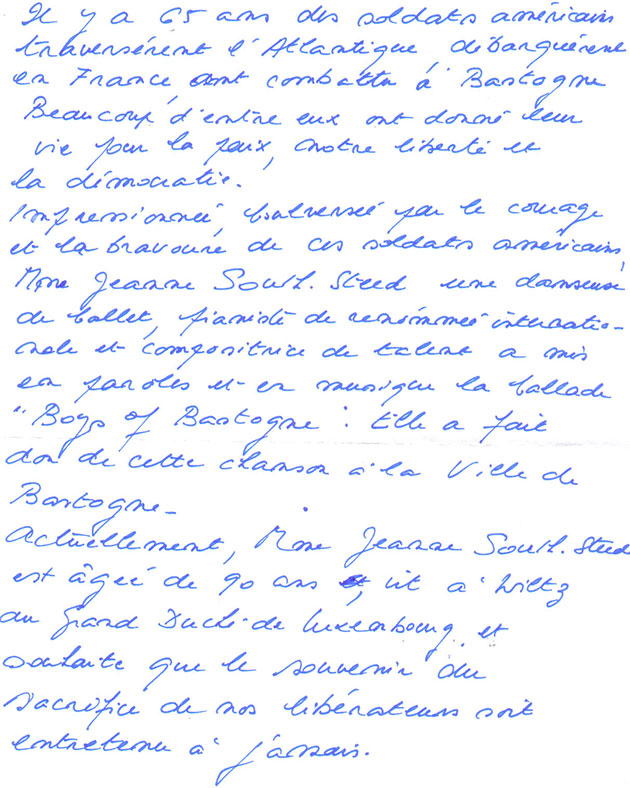 Il y a 65 ans des soldats américains
traversèrent l'Atlantique, débarquèrent
en France, ont combattu à Bastogne
Beaucoup d'entre eux ont donné leur
vie pour la paix, notre liberté et
la démocratie.
Impressionnée bouleversée par le courage
et la bravoure de ces soldats américains,
Mme Jeanne South. Steed une danseuse
de ballet, pianiste de renommée internatio-
nale et compositrice de talent a mis
en paroles et en musique la ballade
"Boys of Bastogne". Elle a fait
don de cette chanson à la Ville de
Bastogne-
Actuellement, Mme Jeanne South. Steed
est âgée de 90 ans, vit à Wiltz
au Grand Duché de Luxembourg et
souhaite que le souvenir du
sacrifice de nos libérateurs soit
entretenu à jamais.